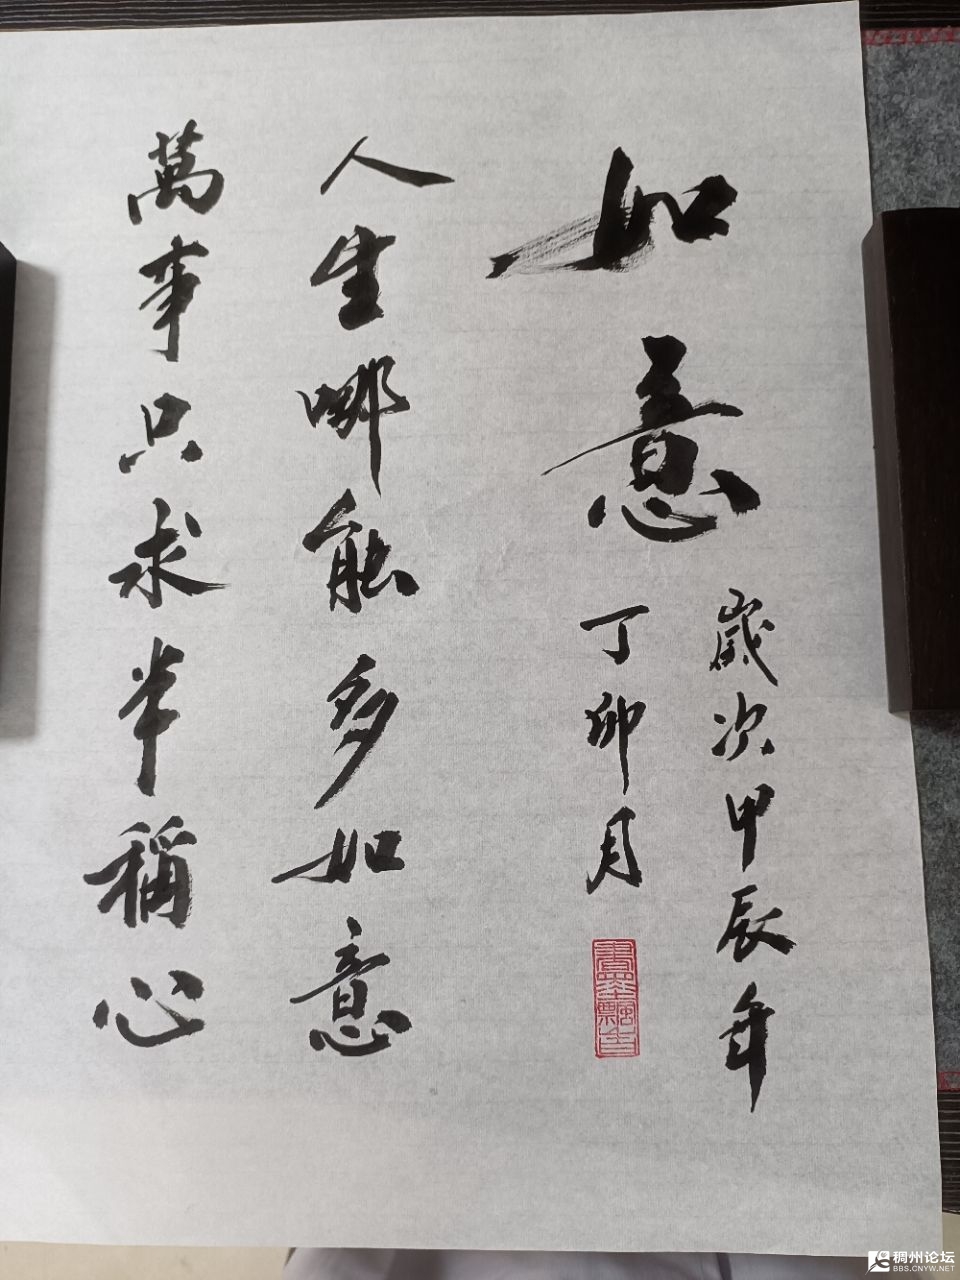 如意
歲次甲辰年
丁卯月
人生哪能多如意
萬事只求半稱心
書墨飄香
稠州论坛
BBS.CNYW.NET